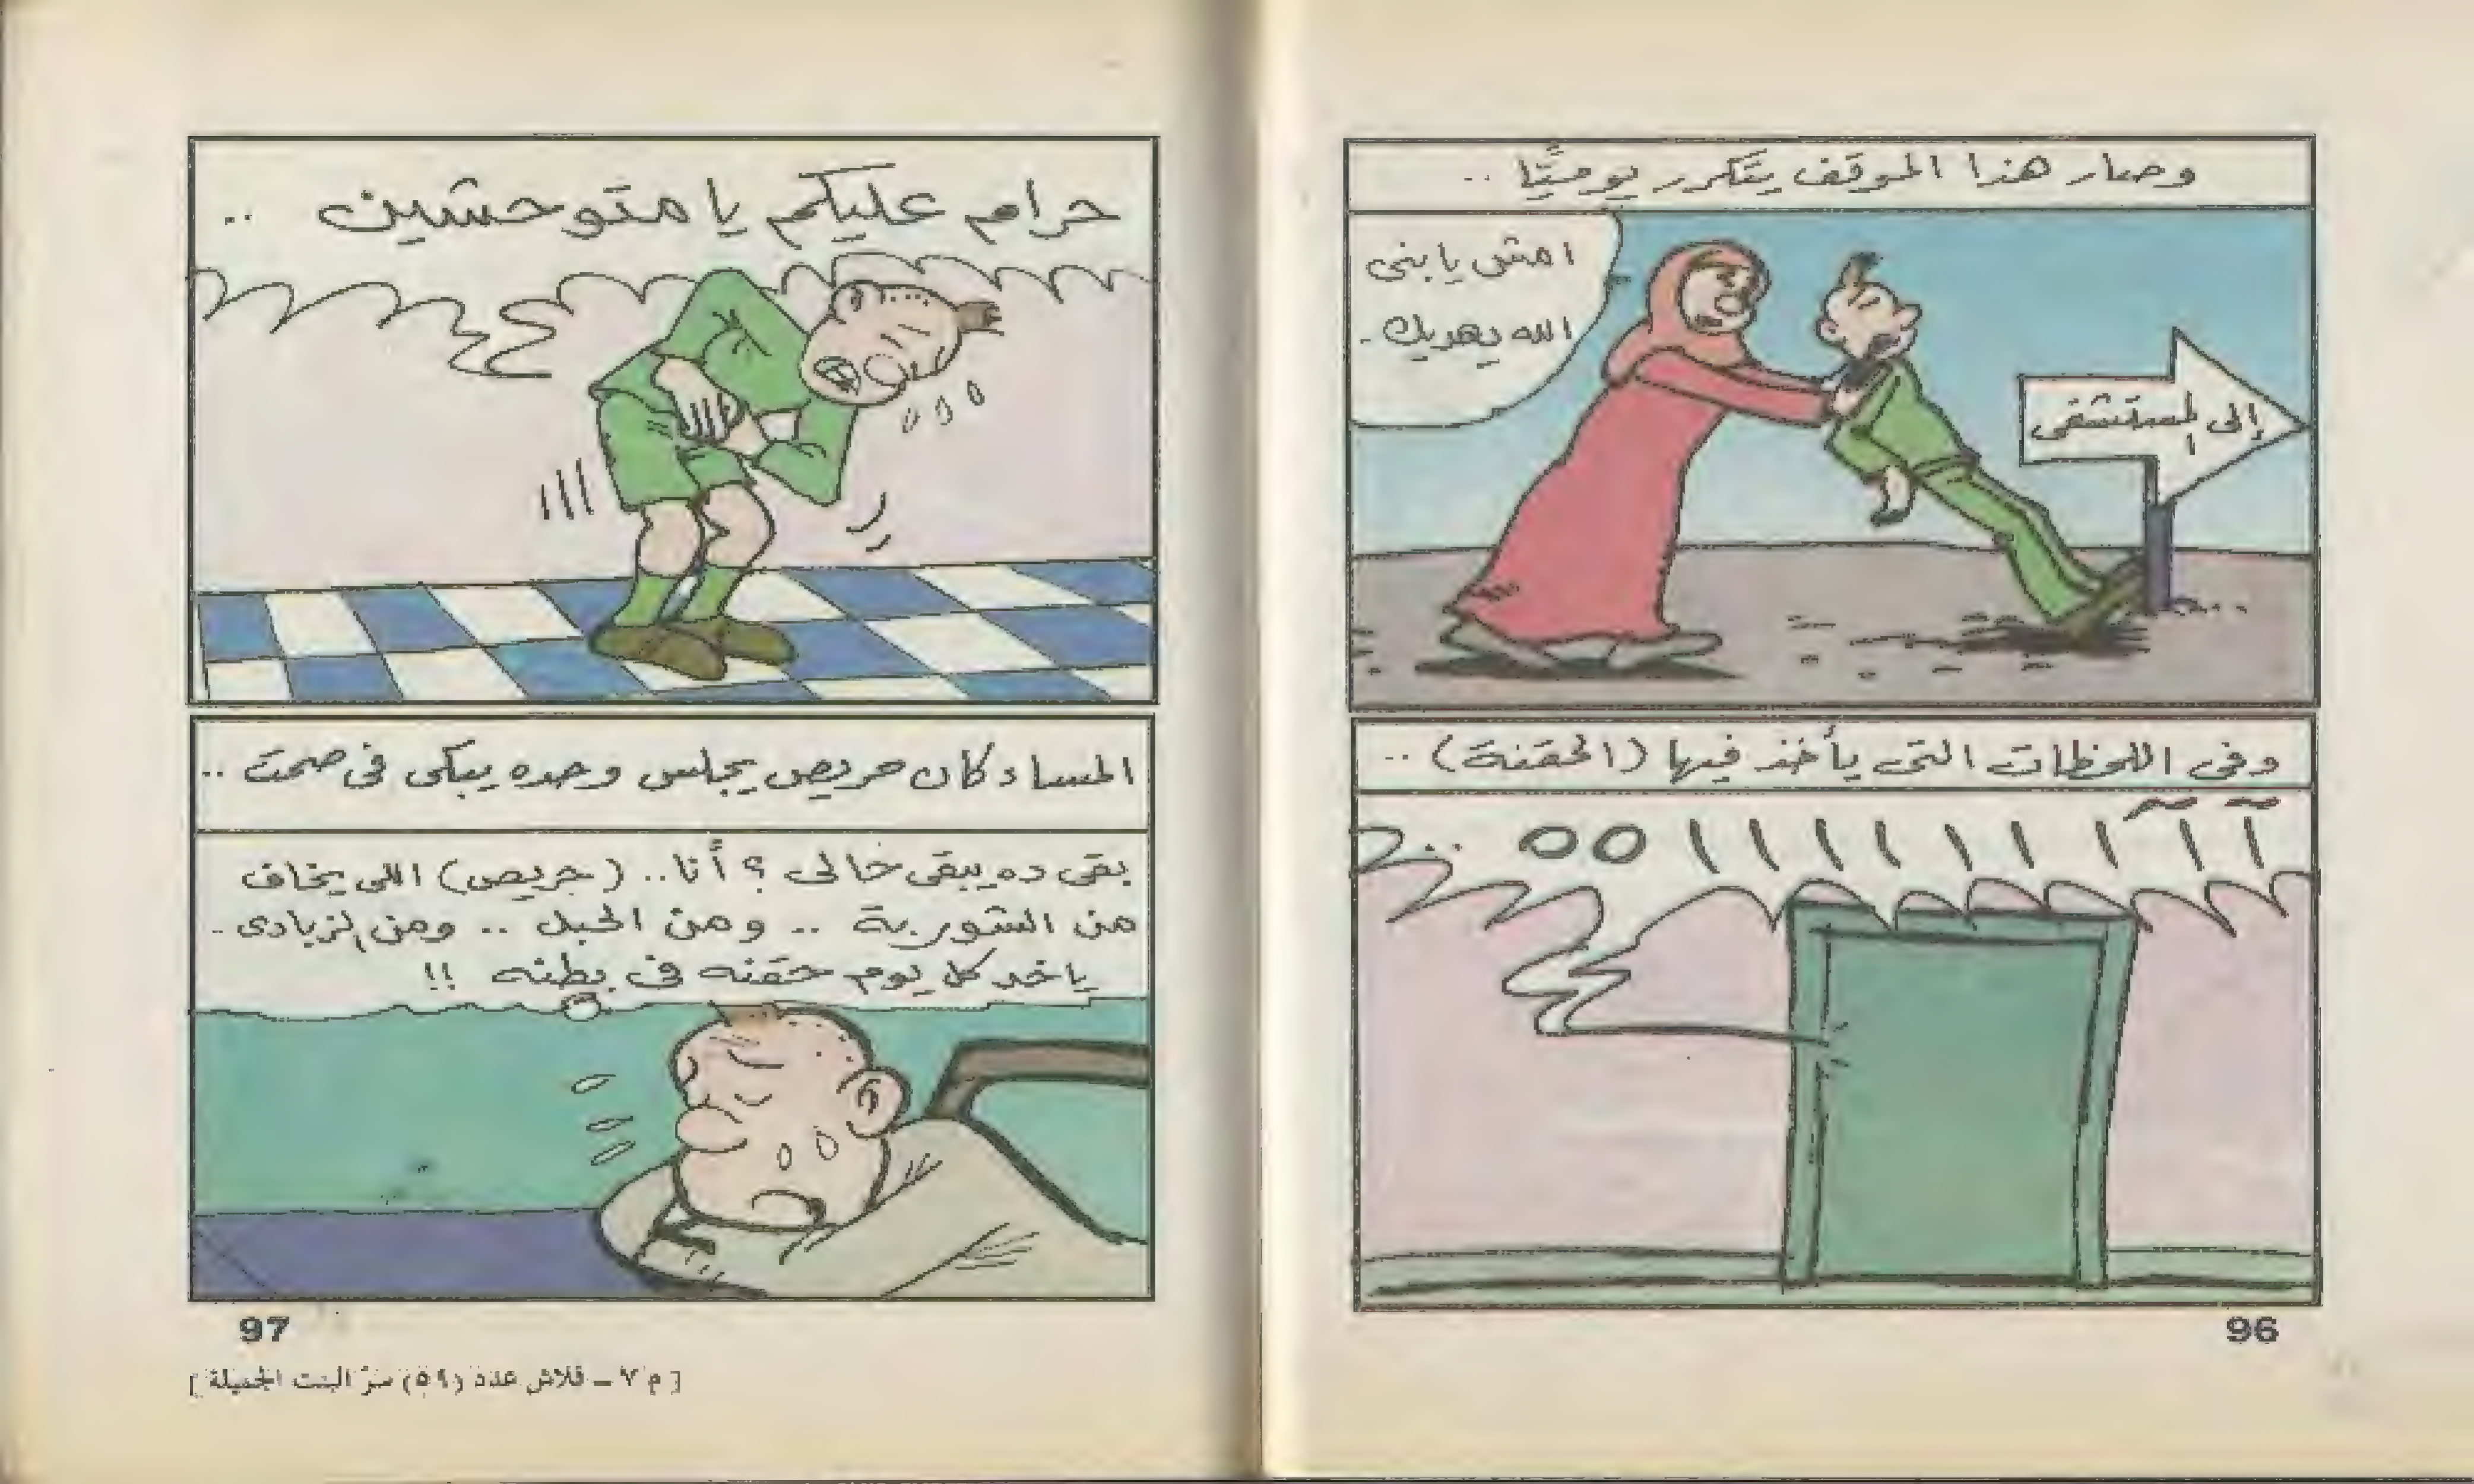 وصار هذا الموقف يتكرر يوميًّا ..
امش يا بنى
الله يهديك .
إلى المستشفى
وفى اللحظات التى يأخذ فيها (الحقنة) ..
آ آ آ ا ا ا ا ا ا ا ا ه ه ..
96
حرام عليكم يا متوحشين ..
المساء كان حريص يجلس وحده يبكى فى صمت ..
بقى ده يبقى حالى ؟ أنا .. (حريص) اللى يخاف
من الشوربة .. ومن الحبل .. ومن الزبادى .
ياخد كل يوم حقنه فى بطنه !!
97
[ م ٧ ــ فلاش عدد (٥٩) سرّ البنت الجميلة ]